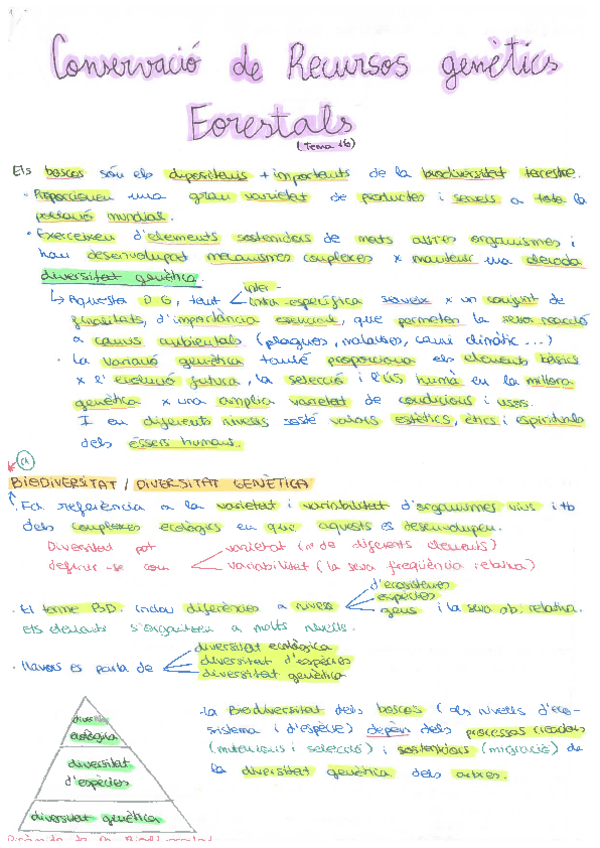 Conservació de Recursos genètics
Forestals
(Tema 16)
Els boscos són els dipositaris + importants de la biodiversitat terrestre.
· Proporcionen una gran varietat de productes i serveis a tota la
població mundial.
· Exerceixen d'elements sostenidors de molts altres organismes i
han desenvolupat mecanismes complexes x mantenir una elevada
diversitat genètica.
↳ Aquesta DG, tant inter-
intra-específica serveix x un conjunt de
finalitats, d'importància essencial, que permeten la seva reacció
a canvis ambientals (plagues, malalties, canvi climàtic...)
· La variació genètica també proporciona els elements bàsics
x l'evolució futura, la selecció i l'ús humà en la millora
genètica x una àmplia varietat de condicions i usos.
I en diferents nivells sosté valors estètics, ètics i espirituals
dels éssers humans.
BIODIVERSITAT / DIVERSITAT GENÈTICA
Fa referència a la varietat i variabilitat d'organismes vius i tb
dels complexes ecològics en que aquests es desenvolupen.
Diversitat pot varietat (nº de diferents elements)
definir-se com variabilitat (la seva freqüència relativa)
d'ecosistemes
espècies
· El terme BD. inclou diferències a nivells gens i la seva ab. relativa.
els elements s'organitzen a molts nivells.
diversitat ecològica
· llavors es parla de diversitat d'espècies
diversitat genètica
diversitat
ecològica
diversitat
d'espècies
diversitat genètica
-La Biodiversitat dels boscos (als nivells d'eco-
sistema i d'espècie) depèn dels processos creadors
(mutacions i selecció) i sostenidors (migració) de
la diversitat genètica dels arbres.